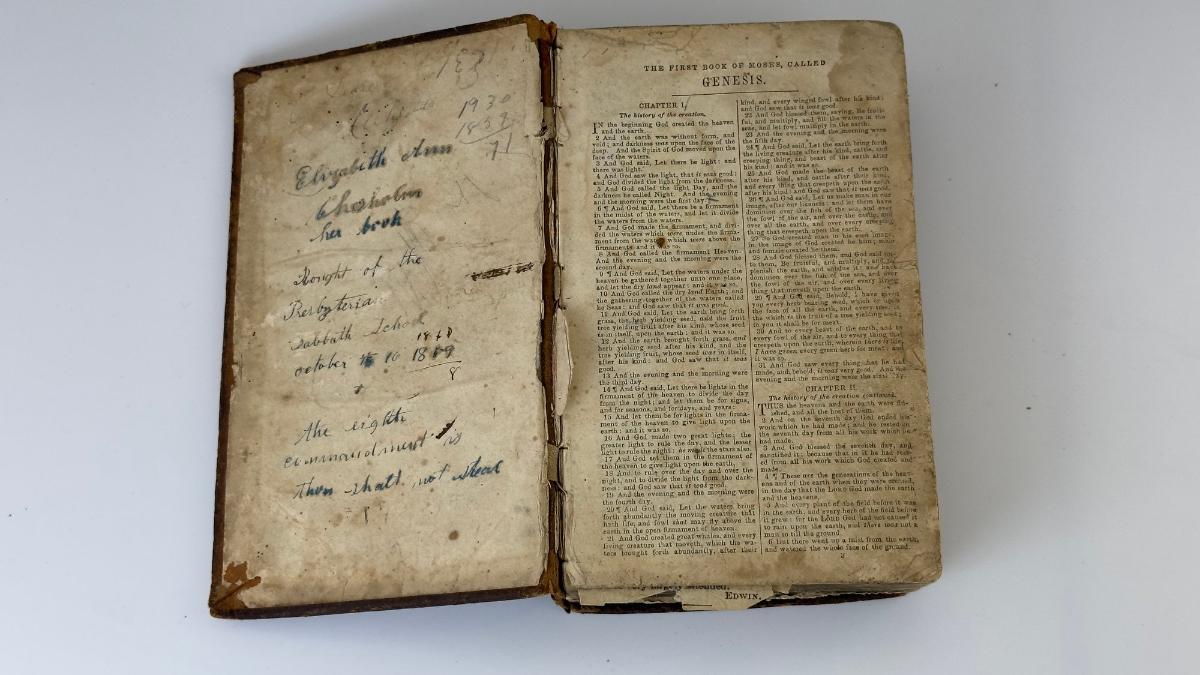 1930
1859
71
Elizabeth Ann
Chisholm
her book
Bought of the
Presbyterian
Sabbath School
october 10 1859
8
the eighth
commandment is
thou shalt not steal
THE FIRST BOOK OF MOSES, CALLED
GENESIS.
CHAPTER I.
The history of the creation.
IN the beginning God created the heaven
and the earth.
2 And the earth was without form, and
void; and darkness was upon the face of the
deep. And the Spirit of God moved upon the
face of the waters.
3 And God said, Let there be light: and
there was light.
4 And God saw the light, that it was good:
and God divided the light from the darkness.
5 And God called the light Day, and the
darkness he called Night. And the evening
and the morning were the first day.
6 ¶ And God said, Let there be a firmament
in the midst of the waters, and let it divide
the waters from the waters.
7 And God made the firmament, and divi-
ded the waters which were under the firma-
ment from the waters which were above the
firmament: and it was so.
8 And God called the firmament Heaven.
And the evening and the morning were the
second day.
9 ¶ And God said, Let the waters under the
heaven be gathered together unto one place,
and let the dry land appear: and it was so.
10 And God called the dry land Earth; and
the gathering together of the waters called
he Seas: and God saw that it was good.
11 And God said, Let the earth bring forth
grass, the herb yielding seed, and the fruit
tree yielding fruit after his kind, whose seed
is in itself, upon the earth: and it was so.
12 And the earth brought forth grass, and
herb yielding seed after his kind, and the
tree yielding fruit, whose seed was in itself,
after his kind: and God saw that it was
good.
13 And the evening and the morning were
the third day.
14 ¶ And God said, Let there be lights in the
firmament of the heaven to divide the day
from the night; and let them be for signs,
and for seasons, and for days, and years:
15 And let them be for lights in the firma-
ment of the heaven to give light upon the
earth: and it was so.
16 And God made two great lights; the
greater light to rule the day, and the lesser
light to rule the night: he made the stars also.
17 And God set them in the firmament of
the heaven to give light upon the earth,
18 And to rule over the day and over the
night, and to divide the light from the dark-
ness: and God saw that it was good.
19 And the evening and the morning were
the fourth day.
20 ¶ And God said, Let the waters bring
forth abundantly the moving creature that
hath life, and fowl that may fly above the
earth in the open firmament of heaven.
21 And God created great whales, and every
living creature that moveth, which the wa-
ters brought forth abundantly, after their
kind, and every winged fowl after his kind:
and God saw that it was good.
22 And God blessed them, saying, Be fruit-
ful, and multiply, and fill the waters in the
seas, and let fowl multiply in the earth.
23 And the evening and the morning were
the fifth day.
24 ¶ And God said, Let the earth bring forth
the living creature after his kind, cattle, and
creeping thing, and beast of the earth after
his kind: and it was so.
25 And God made the beast of the earth
after his kind, and cattle after their kind,
and every thing that creepeth upon the earth
after his kind: and God saw that it was good.
26 ¶ And God said, Let us make man in our
image, after our likeness: and let them have
dominion over the fish of the sea, and over
the fowl of the air, and over the cattle, and
over all the earth, and over every creeping
thing that creepeth upon the earth.
27 So God created man in his own image,
in the image of God created he him; male
and female created he them.
28 And God blessed them, and God said un-
to them, Be fruitful, and multiply, and re-
plenish the earth, and subdue it: and have
dominion over the fish of the sea, and over
the fowl of the air, and over every living
thing that moveth upon the earth.
29 ¶ And God said, Behold, I have given
you every herb bearing seed, which is upon
the face of all the earth, and every tree, in
the which is the fruit of a tree yielding seed;
to you it shall be for meat.
30 And to every beast of the earth, and to
every fowl of the air, and to every thing that
creepeth upon the earth, wherein there is life,
I have given every green herb for meat: and
it was so.
31 And God saw every thing that he had
made, and, behold, it was very good. And the
evening and the morning were the sixth day.
CHAPTER II.
The history of the creation continued.
THUS the heavens and the earth were fin-
ished, and all the host of them.
2 And on the seventh day God ended his
work which he had made; and he rested on
the seventh day from all his work which he
had made.
3 And God blessed the seventh day, and
sanctified it: because that in it he had rest-
ed from all his work which God created and
made.
4 ¶ These are the generations of the heav-
ens and of the earth when they were created,
in the day that the LORD God made the earth
and the heavens,
5 And every plant of the field before it was
in the earth, and every herb of the field before
it grew: for the LORD God had not caused it
to rain upon the earth, and there was not a
man to till the ground.
6 But there went up a mist from the earth,
and watered the whole face of the ground.
EDWIN.